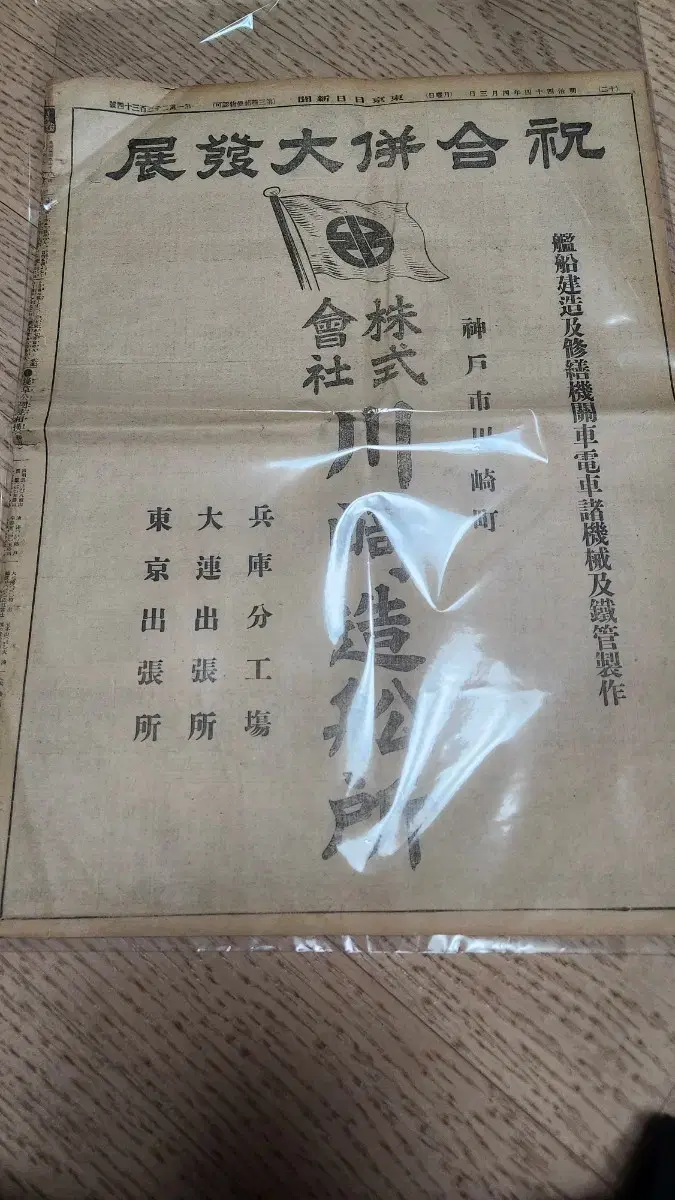 (二十) 日三月四年四十四治明 (日曜月) 聞新日日京東 (可認物便郵種三第) 號四十三百三千二萬一第
祝合併大發展
艦船建造及修繕機關車電車諸機械及鐵管製作
神戸市川崎町
株式會社
川崎造船所
兵庫分工塲
大連出張所
東京出張所